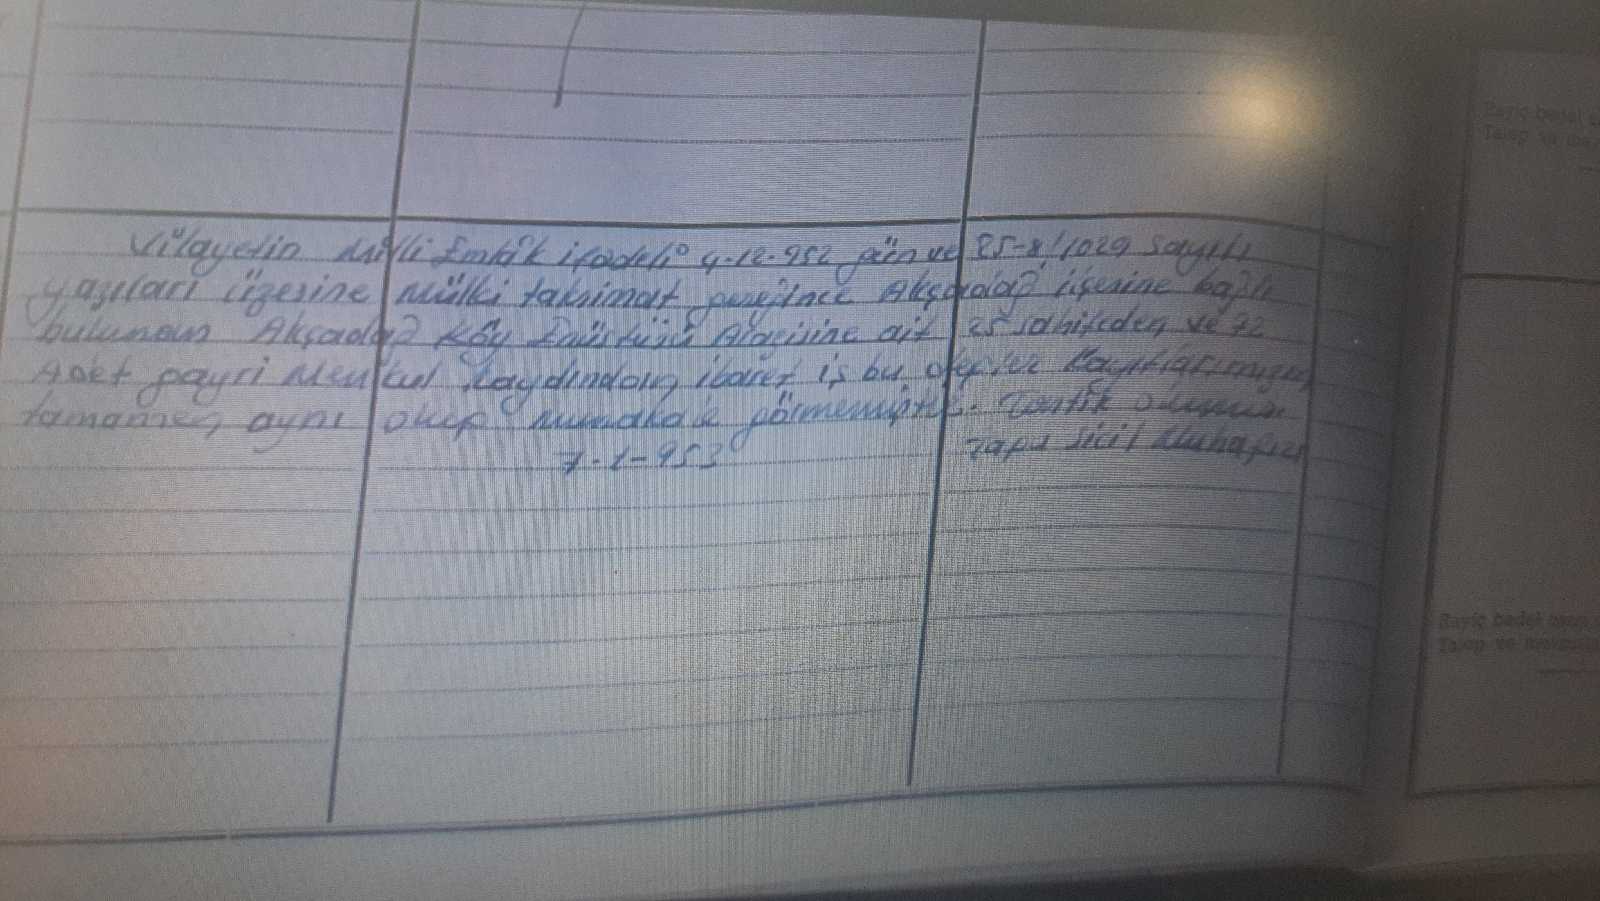 Vilayetin Milli Emlâk ifadeli 4-12-952 gün ve 25-8/1029 Sayılı
yazıları üzerine Mülki taksimat gereğince Akçadağ ilçesine bağlı
bulunan Akçadağ Köy Enüstüsü Arazisine ait 25 sahifeden ve 72
Adet gayri Menkul kaydından ibaret iş bu kayıtlarımızın
tamamen aynı olup görmemiştir. Tastik olunur
7-1-953 Tapu Sicil Muhafızı
Rayiç bedel
Talep ve
Rayiç bedel
Talep ve